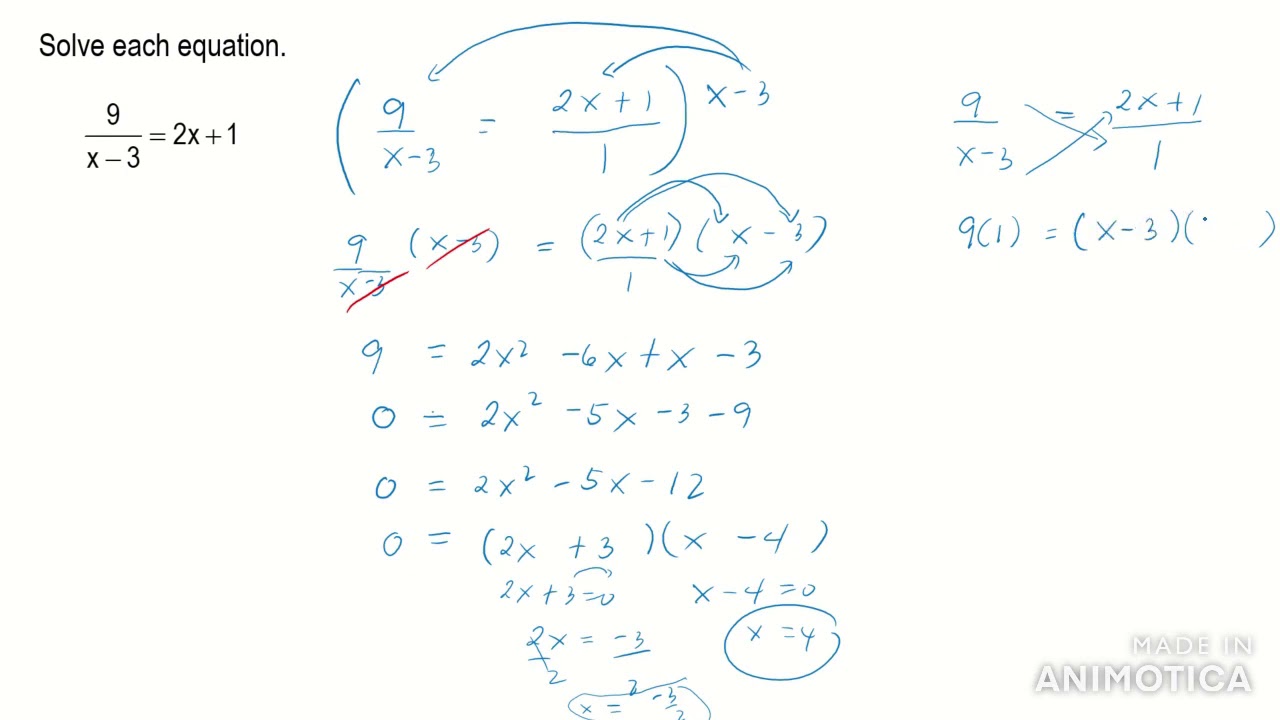 Solve each equation.
9/(x − 3) = 2x + 1
(9/(x−3) = (2x+1)/1) x−3
9/(x−3) (x−3) = (2x+1)/1 (x−3)
9 = 2x² −6x + x − 3
0 = 2x² −5x −3 −9
0 = 2x² −5x −12
0 = (2x +3)(x −4)
2x+3=0
x−4=0
2x/2 = −3/2
x = 4
x = −3/2
9/(x−3) = (2x+1)/1
9(1) = (x−3)( )
MADE IN
ANIMOTICA